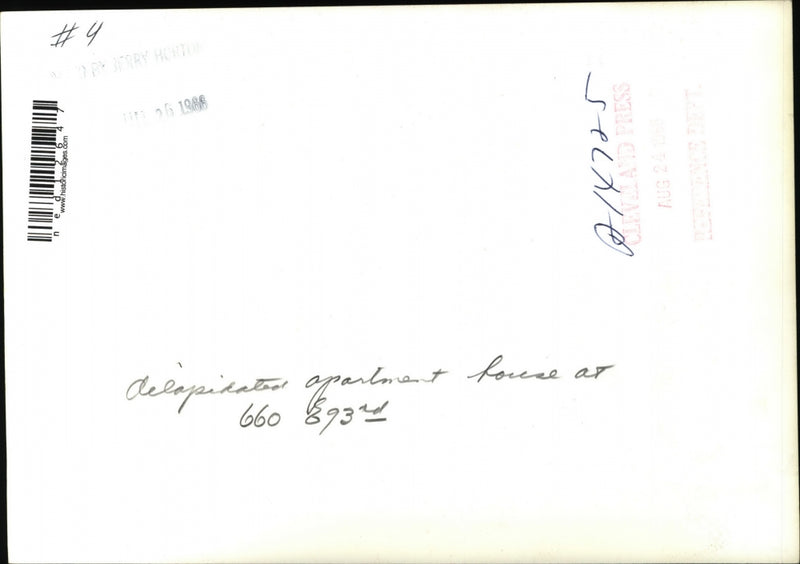 # 4
BY JERRY HORTON
26 1988
ned 2647
www.historicimages.com
A14725
CLEVELAND PRESS
AUG 24
REFERENCE DEPT.
dilapidated apartment house at
660 E93rd